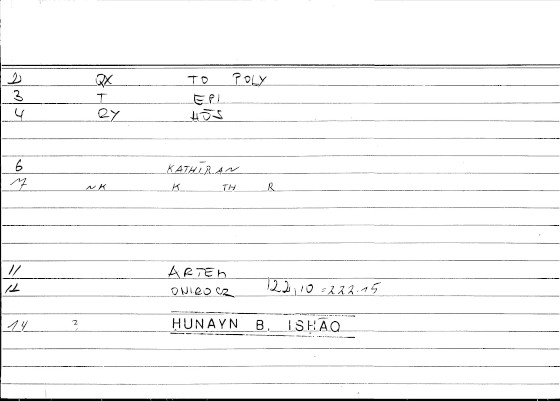 2 QX TO POLY
3 T EPI
4 QY HŌS
6 KATHĪRAN
7 NK K TH R
11 ARTEM
12 ONIROCR 122,10 = 222.15
14 ? HUNAYN B. ISḤĀQ